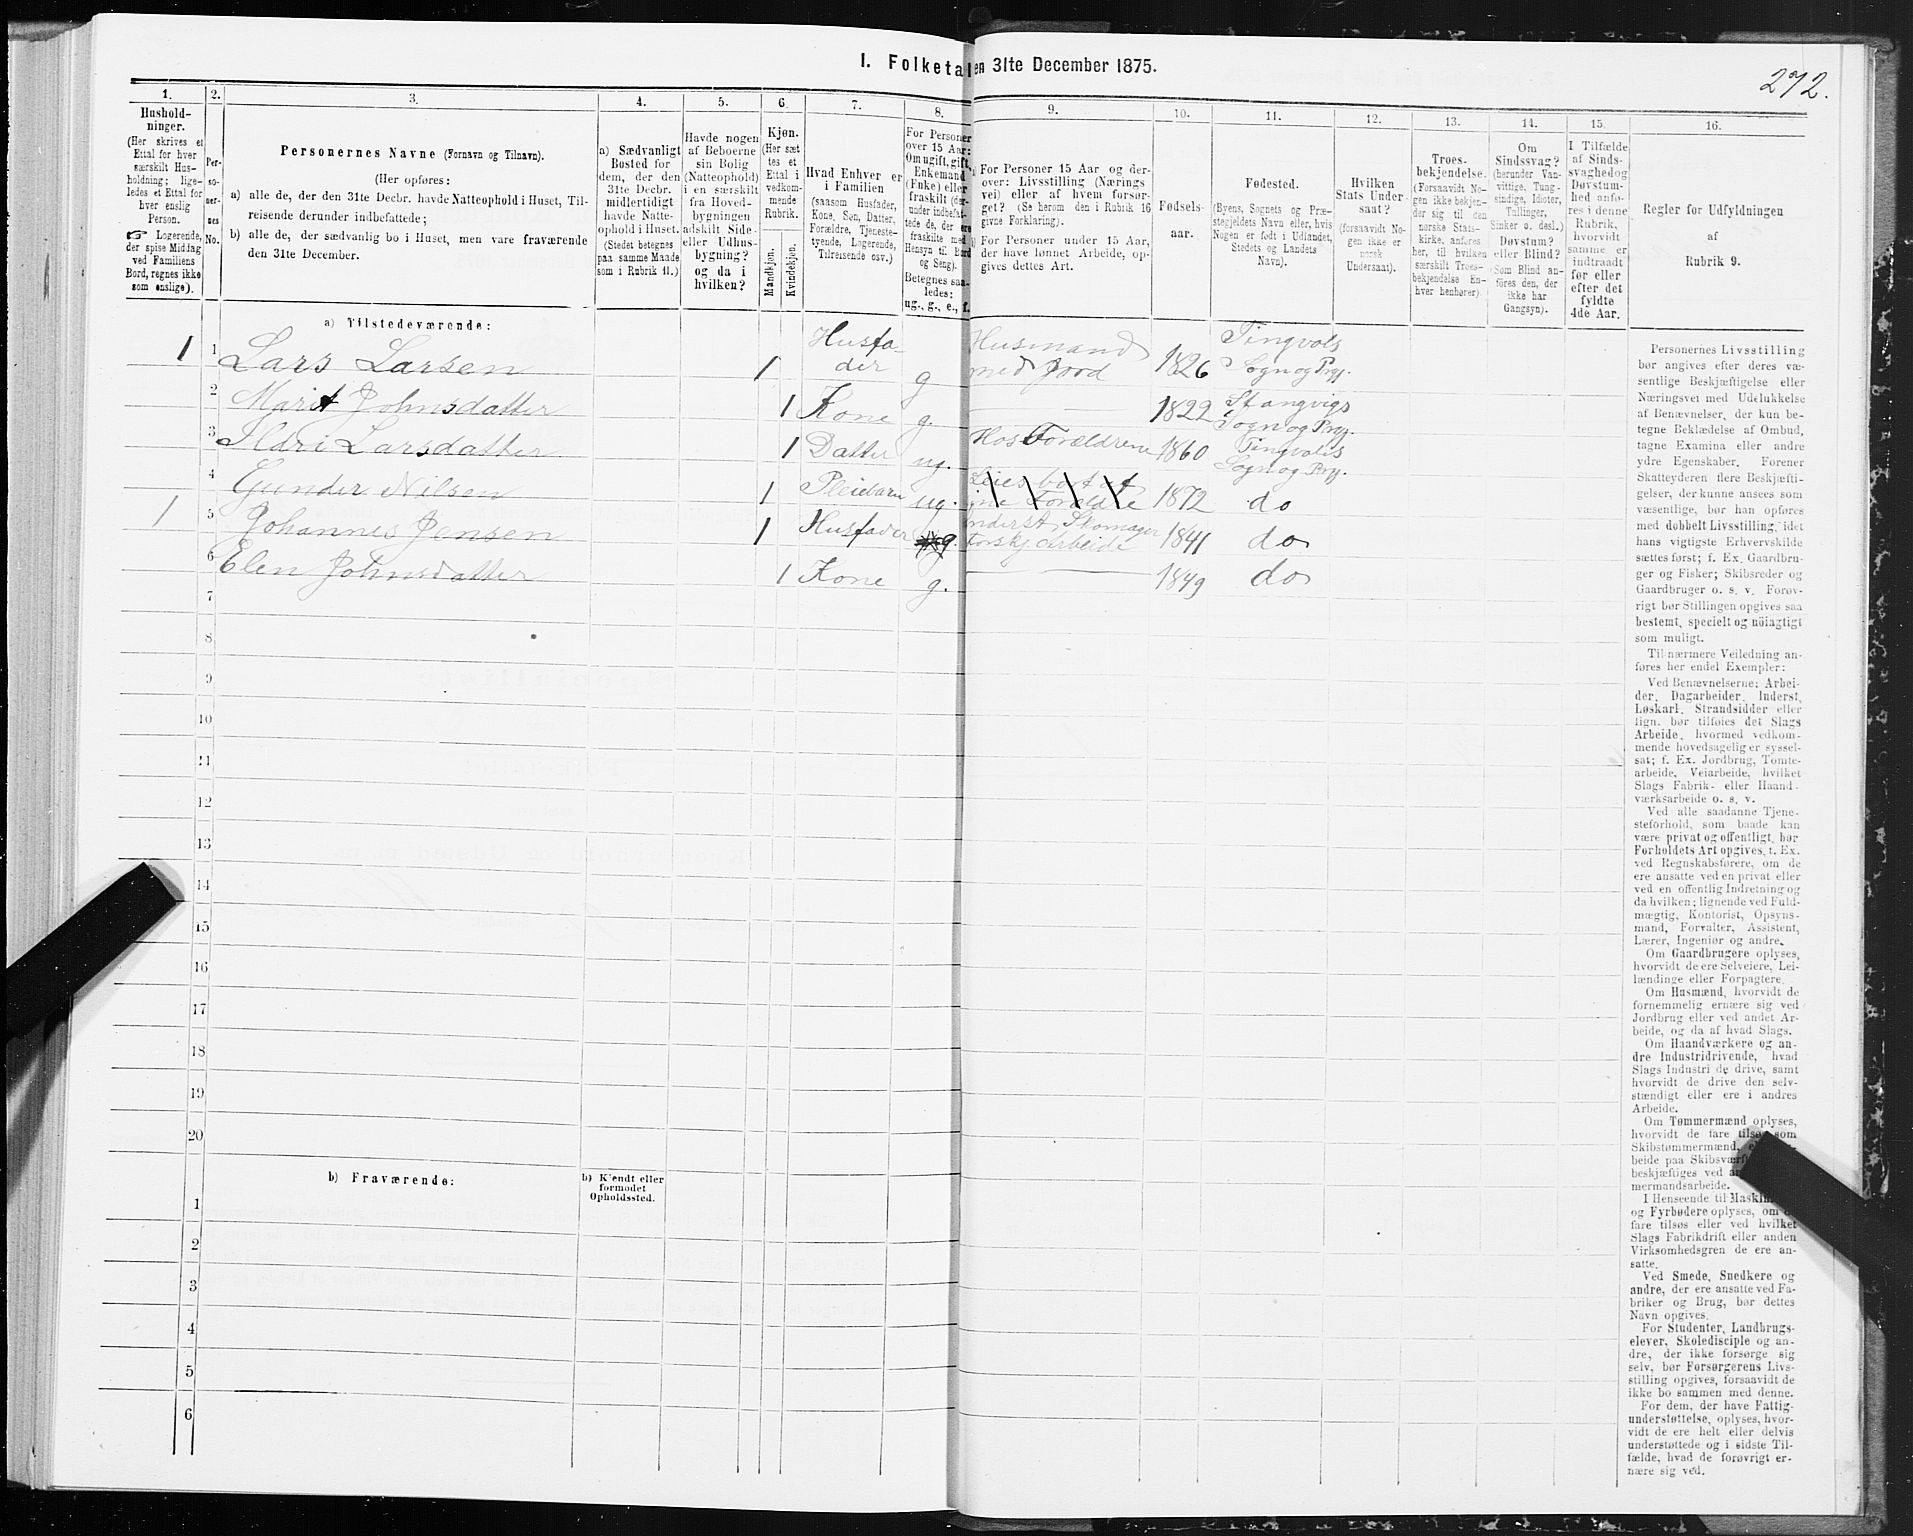 I. Folketal den 31te December 1875.
272.
1.
2.
3.
4.
5.
6.
7.
8.
9.
10.
11.
12.
13.
14.
15.
16.
Hushold-
ninger.
(Her skrives et
Ettal for hver
særskilt Hus-
holdning; lige-
ledes et Ettal for
hver enslig
Person.
☞ Logerende,
der spise Middag
ved Familiens
Bord, regnes ikke
som enslige).
Per-
so-
ner-
nes
No.
Personernes Navne (Fornavn og Tilnavn).
(Her opføres:
a) alle de, der den 31te Decbr. havde Natteophold i Huset, Til-
reisende derunder indbefattede;
b) alle de, der sædvanlig bo i Huset, men vare fraværende
den 31te December.
a) Sædvanligt
Bosted for
dem, der den
31te Decbr.
midlertidigt
havde Natte-
ophold i Huset.
(Stedet betegnes
paa samme Maade
som i Rubrik 11.)
Havde nogen
af Beboerne
sin Bolig
(Natteophold)
i en særskilt
fra Hoved-
bygningen
adskilt Side-
eller Udhus-
bygning?
og da i
hvilken?
Kjøn.
(Her sæt-
tes et
Ettal i
vedkom-
mende
Rubrik.
Mandkjøn.
Kvindekjøn.
Hvad Enhver er
i Familien
(saasom Husfader,
Kone, Søn, Datter,
Forældre, Tjeneste-
tyende, Logerende,
Tilreisende osv.)
For Personer
over 15 Aar:
Om ugift, gift,
Enkemand
(Enke) eller
fraskilt (der-
under indbefat-
tede de, der ere
fraskilte med
Hensyn til Bord
og Seng).
Betegnes saa-
ledes:
ug., g., e., f.
For Personer 15 Aar og der-
over: Livsstilling (Nærings-
vei) eller af hvem forsør-
get? (Se herom den i Rubrik 16
givne Forklaring).
For Personer under 15 Aar,
der have lønnet Arbeide, op-
gives dettes Art.
Fødsels-
aar.
Fødested.
(Byens, Sognets og Præ-
stegjeldets Navn eller, hvis
Nogen er født i Udlandet,
Stedets og Landets
Navn).
Hvilken
Stats Under-
saat?
(forsaavidt No-
gen ikke er
norsk
Undersaat).
Troes-
bekjendelse.
(Forsaavidt No-
gen ikke bekjen-
der sig til den
norske Stats-
kirke, anføres
her, til hvilken
særskilt Troes-
bekjendelse En-
hver henhører).
Om
Sindssvag?
(herunder Van-
vittige, Tung-
sindige, Idioter,
Tullinger,
Sinker o. desl.)
Døvstum?
eller Blind?
(Som Blind an-
føres den, der
ikke har
Gangsyn).
I Tilfælde
af Sinds-
svaghed og
Døvstum-
hed anfø-
res i denne
Rubrik,
hvorvidt
samme er
indtraadt
før eller
efter det
fyldte
4de Aar.
Regler før Udfyldningen
af
Rubrik 9.
a) Tilstedeværende:
1 1 Lars Larsen 1 Husfa-
der g Husmand
med Jord 1826 Tingvols
Sogn og Prgj.
2 Marit Johnsdatter 1 Kone g. 1822 Stangvigs
Sogn og Prgj.
3 Ildri Larsdatter 1 Datter ug. Hos Forældrene 1860 Tingvolls
Sogn og Prgj.
4 Gunder Nilsen 1 Pleiebarn ug. 1872 do
1 5 Johannes Jensen 1 Husfader g. Inderst Skomager
forskj Arbeide 1841 do
6 Elen Johnsdatter 1 Kone g. 1849 do
7
8
9
10
11
12
13
14
15
16
17
18
19
20
b) Fraværende:
b) Kjendt eller
formodet
Opholdssted.
1
2
3
4
5
6
Personernes Livsstilling
bør angives efter deres væ-
sentlige Beskjæftigelse eller
Næringsvei med Udelukkelse
af Benævnelser, der kun be-
tegne Beklædelse af Ombud,
tagne Examina eller andre
ydre Egenskaber. Forener
Skatteyderen flere Beskjæfti-
gelser, der kunne ansees som
væsentlige, bør han opføres
med dobbelt Livsstilling, idet
hans vigtigste Erhvervskilde
sættes først; f. Ex. Gaardbru-
ger og Fisker; Skibsreder og
Gaardbruger o. s. v. Forøv-
rigt bør Stillingen opgives saa
bestemt, specielt og nöiagtigt
som muligt.
Til nærmere Veiledning an-
føres her endel Exempler:
Ved Benævnelserne: Arbei-
der, Dagarbeider, Inderst,
Løskarl, Strandsidder eller
lign. bør tilføies det Slags
Arbeide, hvormed vedkom-
mende hovedsagelig er syssel-
sat; f. Ex. Jordbrug, Tomte-
arbeide, Veiarbeide, hvilket
Slags Fabrik- eller Haand-
værksarbeide o. s. v.
Ved alle saadanne Tjene-
steforhold, som baade kan
være privat og offentligt, bør
Forholdets Art opgives, f. Ex.
ved Regnskabsførere, om de
ere ansatte ved en privat eller
ved en offentlig Indretning og
da hvilken; lignende ved Fuld-
mægtig, Kontorist, Opsyns-
mand, Forvalter, Assistent,
Lærer, Ingeniør og andre.
Om Gaardbrugere oplyses,
hvorvidt de ere Selveiere, Lei-
lændinge eller Forpagtere.
Om Husmænd, hvorvidt de
fornemmelig ernære sig ved
Jordbrug eller ved andet Ar-
beide, og da af hvad Slags.
Om Haandværkere og an-
dre Industridrivende, hvad
Slags Industri de drive, samt
hvorvidt de drive den selv-
stændigt eller ere i andres
Arbeide.
Om Tømmermænd oplyses,
hvorvidt de fare tilsøs som
Skibstømmermænd,
beide paa
beskjæftiges ved
mermandsarbeide.
I Henseende til
og Fyrbødere oplyses, om
fare tilsøs eller ved hvilket
Slags Fabrikdrift eller anden
Virksomhedsgren de ere an-
satte.
Ved Smede, Snedkere og
andre, der ere ansatte ved Fa-
briker og Brug, bør dettes
Navn opgives.
For Studenter, Landbrugs-
elever, Skoledisciple og an-
dre, der ikke forsørge sig
selv, bør Forsørgerens Livs-
stilling opgives, forsaavidt de
ikke bo sammen med denne.
For dem, der have Fattig-
understøttelse, oplyses, hvor-
vidt de ere helt eller delvis
understøttede og i sidste Til-
fælde, hvad de forøvrigt er-
nære sig ved.